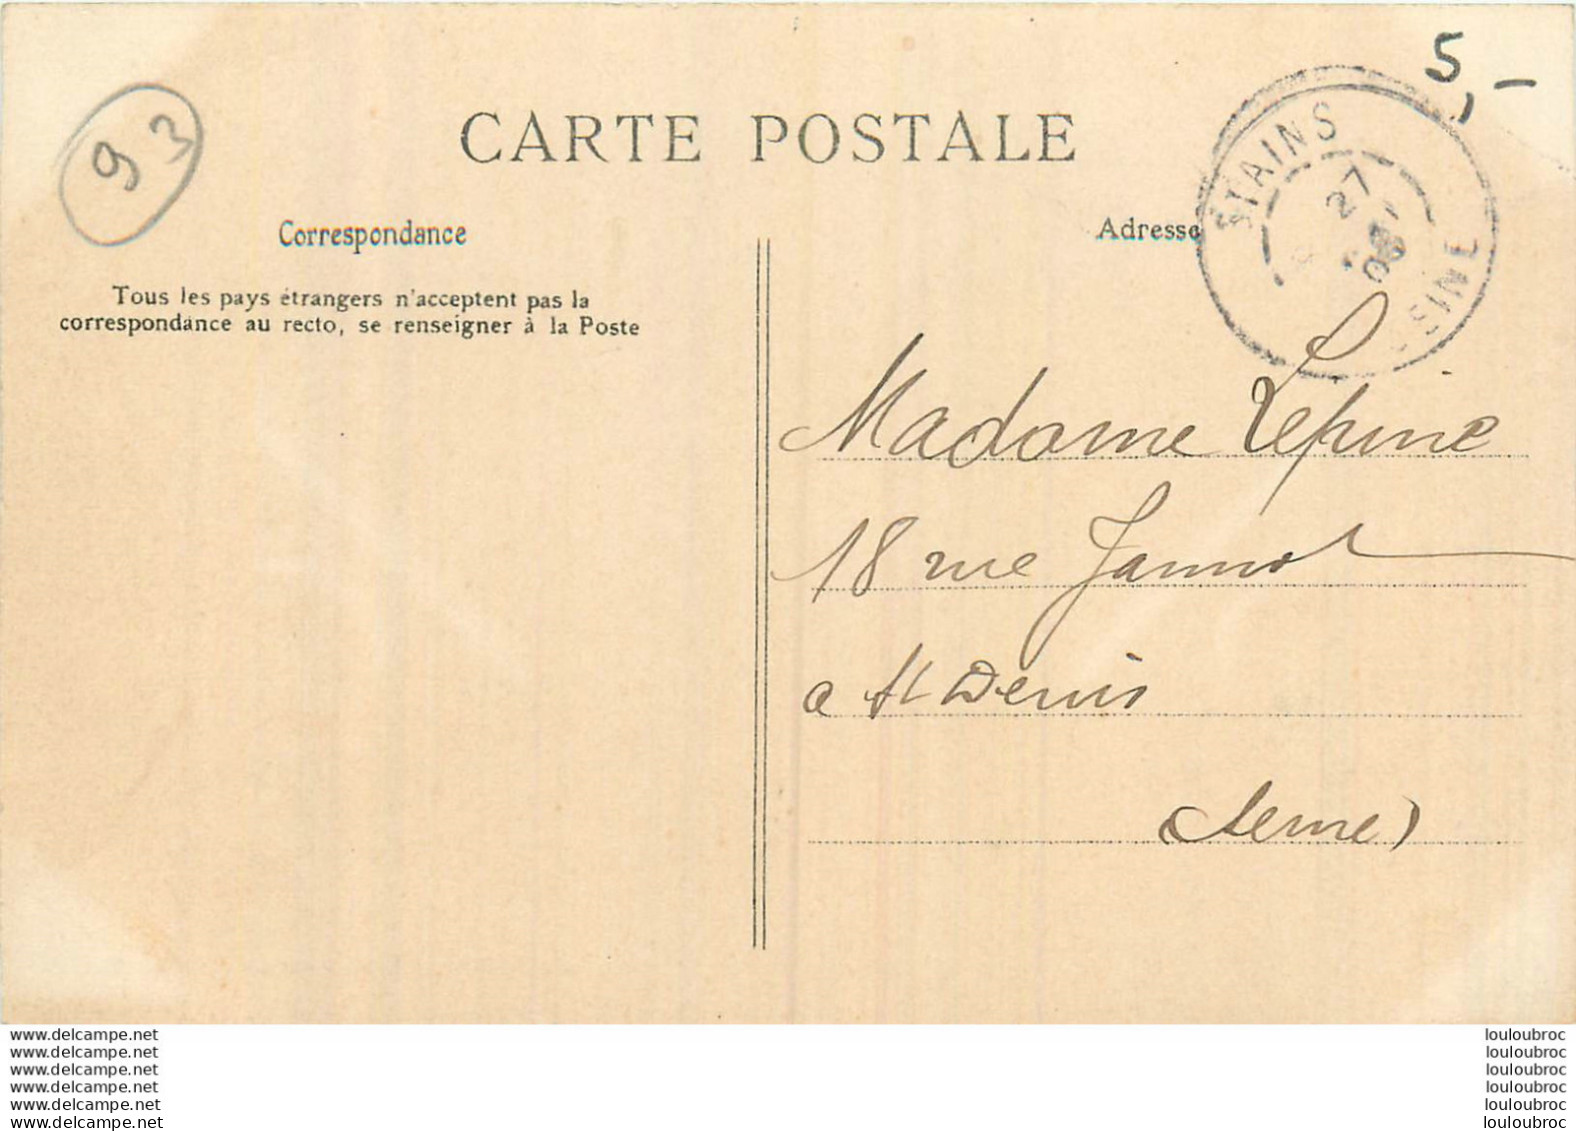 5,-
93
CARTE POSTALE
STAINS
27
SEINE
Correspondance
Adresse
Tous les pays étrangers n'acceptent pas la
correspondance au recto, se renseigner à la Poste
Madame Lépine
18 rue Jannot
a St Denis
(Seine)
www.delcampe.net
www.delcampe.net
www.delcampe.net
www.delcampe.net
www.delcampe.net
www.delcampe.net
louloubroc
louloubroc
louloubroc
louloubroc
louloubroc
louloubroc